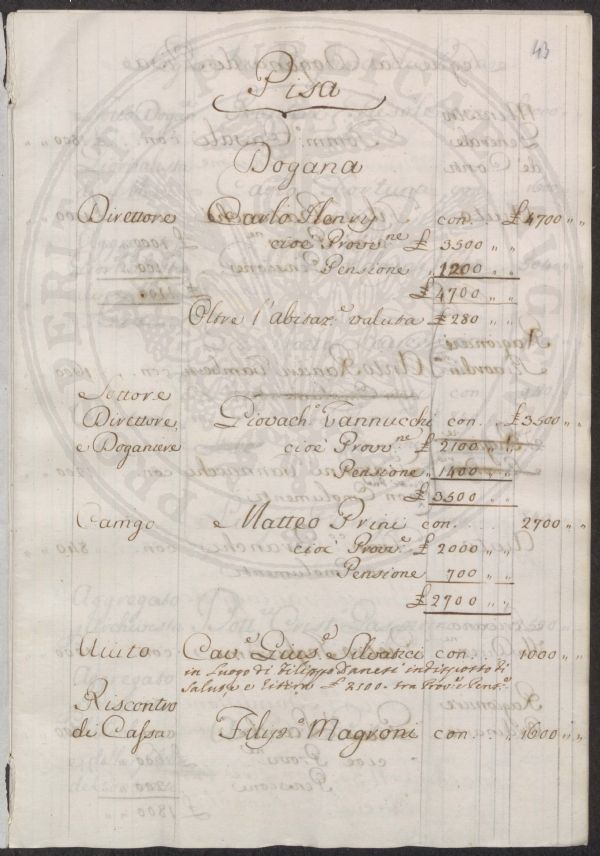 43
Pisa
Dogana
Direttore Carlo Henry con. £ 4700 „ „
cioè Provv.ne £ 3500 „ „
Pensione „ 1200 „ „
£ 4700 „ „
Oltre l'abitaz.e valuta £ 280 „ „
Sottore
Direttore, Giovach.o Vannucchi con. £ 3500 „
e Doganiere cioè Provv.ne £ 2100 „ „
Pensione „ 1400 „ „
£ 3500 „ „
Camgo e Matteo Prini con. 2700 „ „
cioè Provv.e £ 2000 „ „
Pensione 700 „ „
£ 2700 „ „
Aiuto Cav.e Gius.e Silvatici con. „ 1000 „ „
in luogo di Filippo Daneti indisposto di
salute e ritira £ 2100. tra Prov.e e Pens.e
Riscontro
di Cassa Filip.o Magroni con. „ 1600 „ „